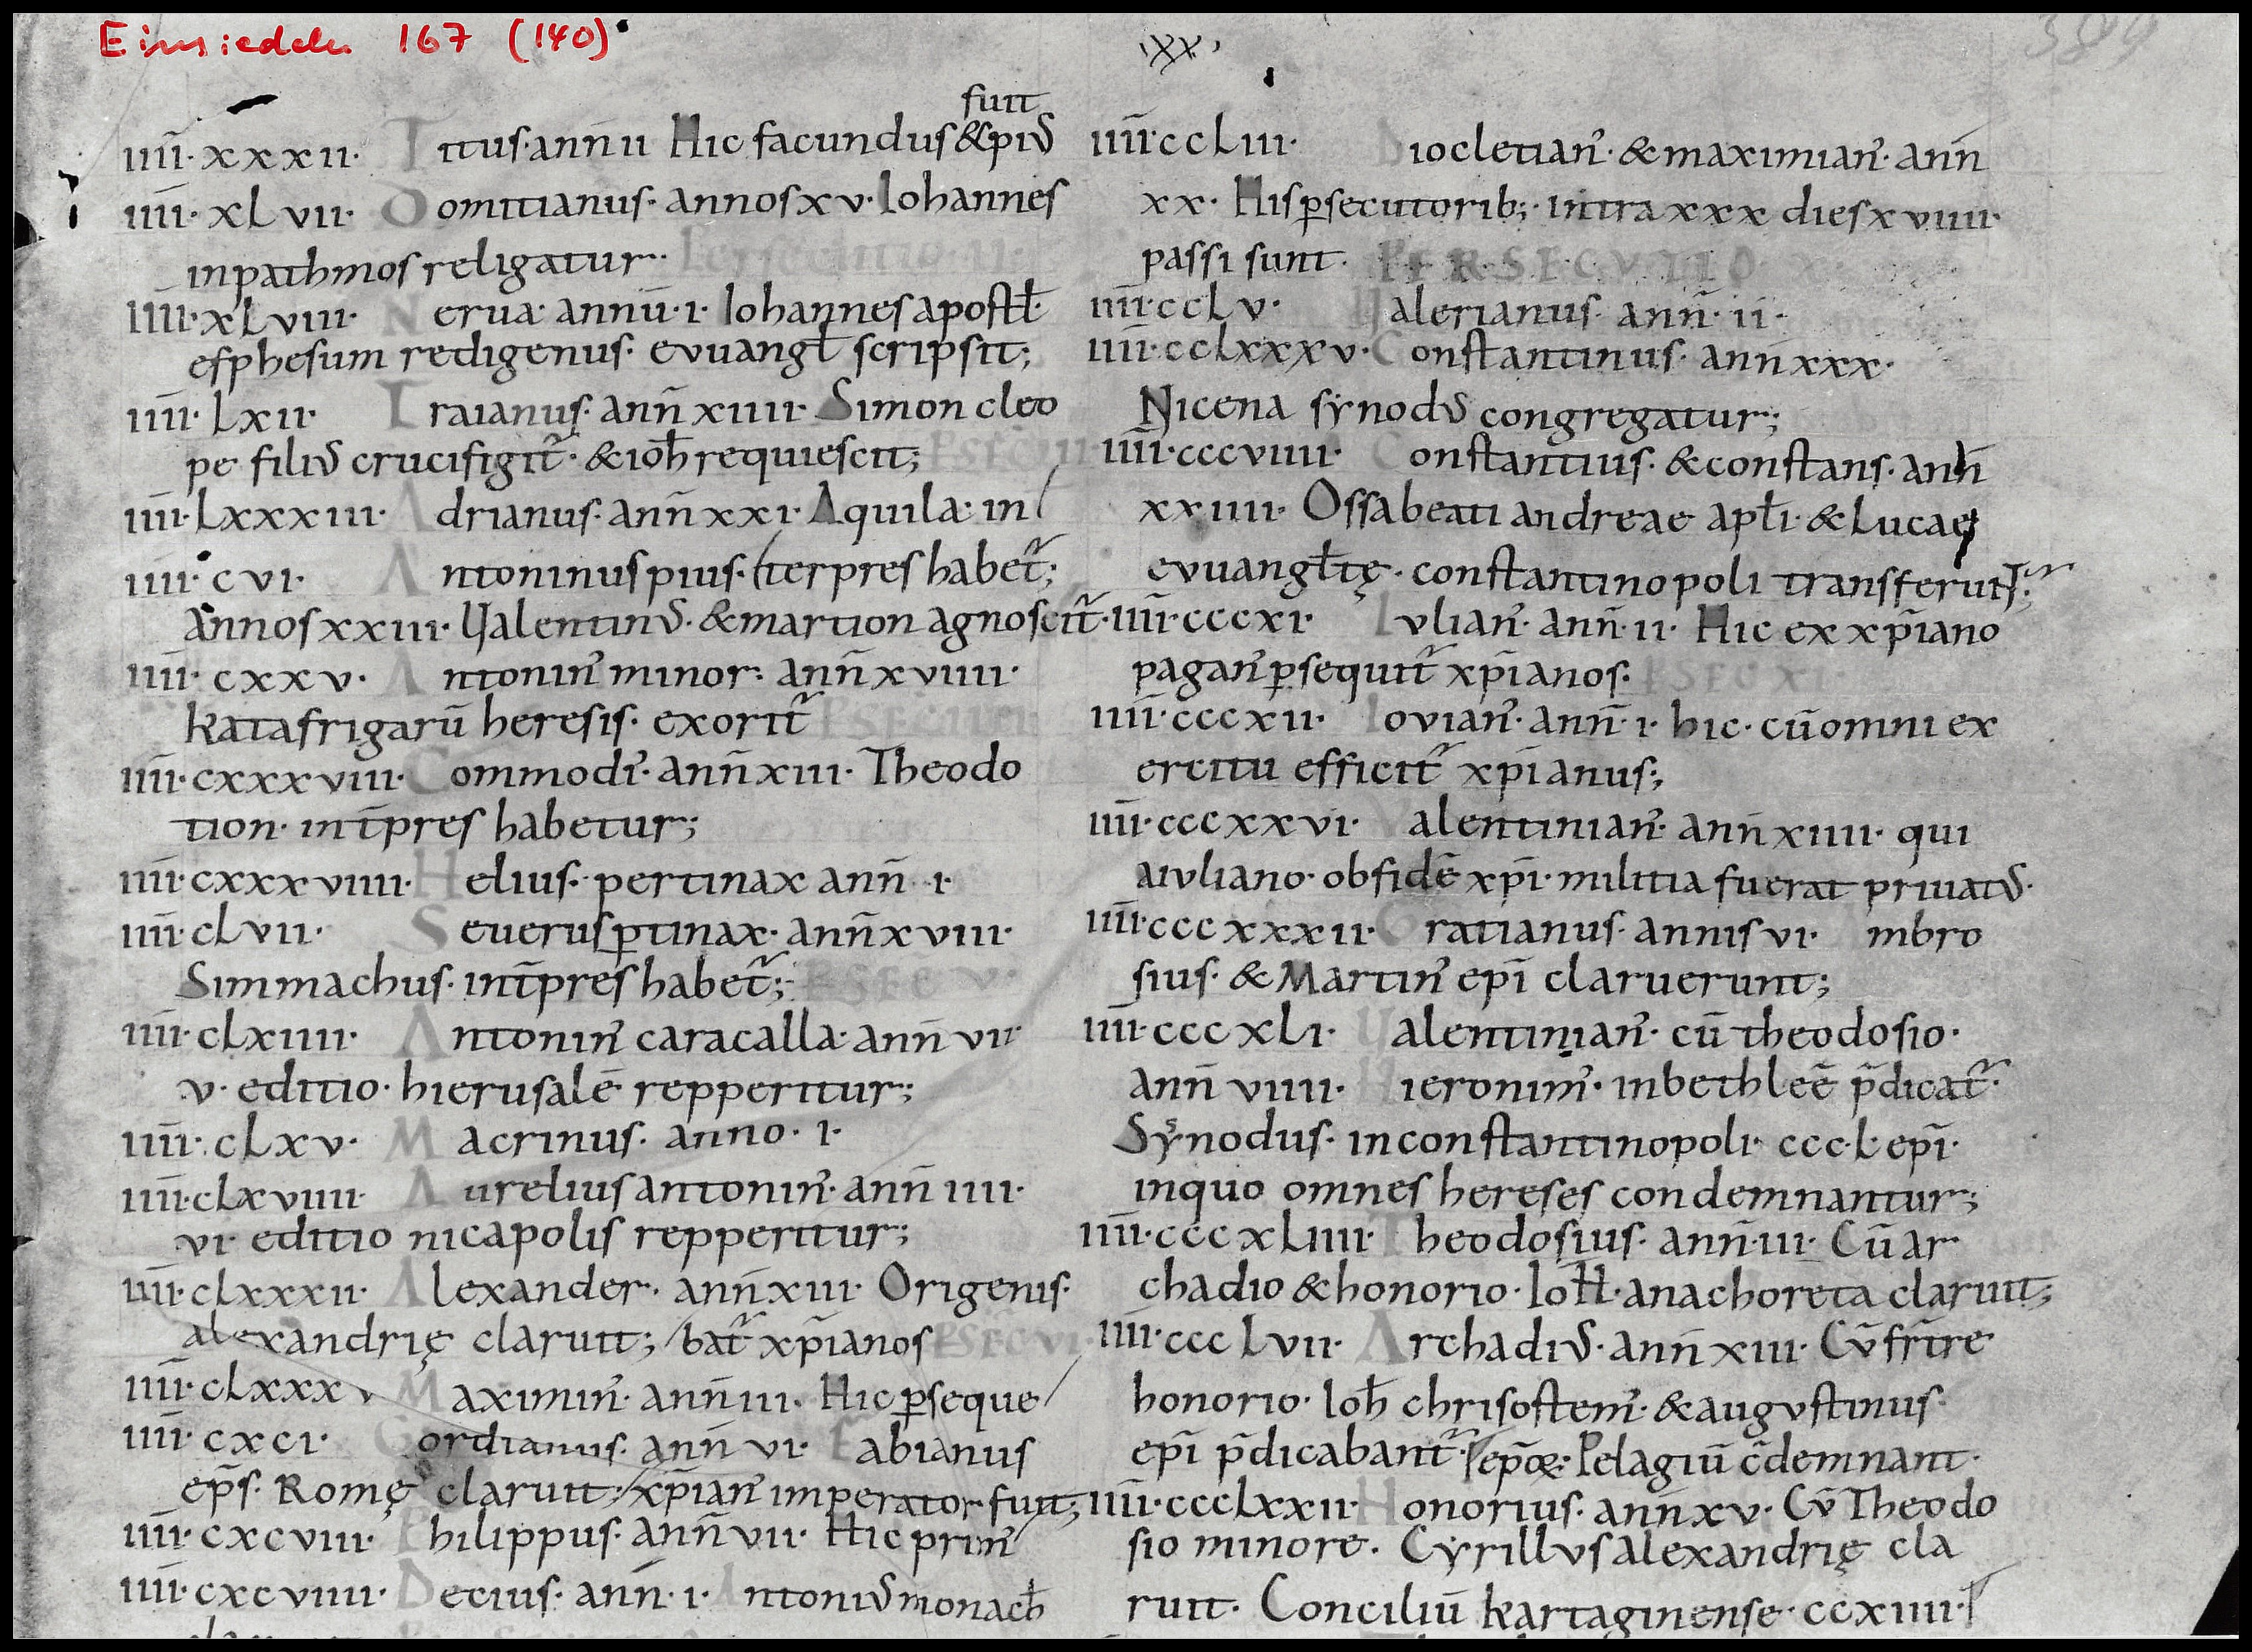 Einsiedeln 167 (140)
·xx·
389
fuit
iiii·xxxii· Titus·ann̄ ii Hic facundus & piuſ
iiii·xLvii· Domitianus· annos xv· Iohannes
in pathmos religatur· Persecutio ii
iiii·xLviii· Nerua· annū·i· Iohannes apostl̄·
esphesum redigenus· evuangl̄ scripsit;
iiii·Lxii· Traianus· ann̄ xiiii· Simon cleo
pe filius crucifigit᷑· & ioh̄ requiescit; PSEC III
iiii·Lxxxiii· Adrianus· ann̄ xxi· Aquila· in/
iiii·cvi· Antoninus pius· /terpres habet᷑;
Annos xxiii· Ualentinus· & martion agnoscit᷑·
iiii·cxxv· Antonin᾽ minor· ann̄ xviiii·
katafrigarū heresis· exorit᷑ PSEC IIII
iiii·cxxxviii· Commod᾽· ann̄ xiii· Theodo
tion· int̄pres habetur;
iiii·cxxxviiii· Helius· pertinax ann̄ ·i·
iiii·cLvii· Seuerus ꝑtinax· ann̄ xviii·
Simmachus· int̄pres habet᷑; PSEC V·
iiii·cLxiiii· Antonin᾽ caracalla· ann̄ vii·
v· editio· hierusalē repperitur;
iiii·cLxv· Macrinus· anno· i·
iiii·cLxviiii· Aurelius antonin᾽· ann̄ iiii·
vi· editio nicapolis repperitur;
iiii·cLxxxii· Alexander· ann̄ xiii· Origenis·
alexandrię claruit; /bat᷑ xp̄ianos PSEC VI
iiii·cLxxxv Maximin᾽· ann̄ iii· Hic ꝑseque/
iiii·cxci· Gordianus· ann̄ vi· Fabianus
ep̄s· Romę claruit; /xp̄ian᾽ imperator fuit;
iiii·cxcviii· Philippus· ann̄ vii· Hic prim᾽/
iiii·cxcviiii· Decius· ann̄·i· Antonius monach̄
iiii·ccLiii· Diocletian᾽· & maximian᾽· ann̄
xx· His ꝑsecutorib;· intra xxx dies xviiii·
passi sunt· PERSECVTIO x
iiii·ccLv· Ualerianus· ann̄·ii·
iiii·ccLxxxv· Constantinus· ann̄ xxx·
Nicena synodus congregatur;
iiii·cccviiii· Constantius· & constans· ann̄
xxiiii· Ossa beati andreae apl̄i· & Lucae
evuangl̄tę· constantinopoli transferunt᷑;
iiii·cccxi· Iulian᾽· ann̄·ii· Hic ex xp̄iano
pagan᾽ ꝑsequit᷑ xp̄ianos· PSEC XI
iiii·cccxii· Iovian᾽· ann̄·i· hic· cū omni ex
ercitu efficit᷑ xp̄ianus;
iiii·cccxxvi· Valentinian᾽· ann̄ xiiii· qui
a iuliano· ob fidē xp̄i· militia fuerat priuatus·
iiii·cccxxxii· Gratianus· annis vi· Ambro
sius· & Martin᾽ ep̄i claruerunt;
iiii·cccxLi· Ualentinian᾽· cū theodosio·
ann̄ viiii· Hieronim᾽· in bethleē p̄dicat᷑·
Synodus· in constantinopoli· ccc·L·ep̄i·
in quo omnes hereses condemnantur;
iiii·cccxLiiii· Theodosius· ann̄·iii· Cū ar
chadio & honorio· Ioh̄· anachoreta claruit;
iiii·cccLvii· Archadius· ann̄ xiii· Cū fr̄tre
honorio· Ioh̄ chrisostem᾽· & augustinus·
ep̄i p̄dicabant᷑· /ep̄oꝝ· Pelagiū c̄demnant·
iiii·cccLxxii· Honorius· ann̄ xv· Cū Theodo
sio minore· Cyrillus alexandrię cla
ruit· Conciliū kartaginense· ccxiiii·/